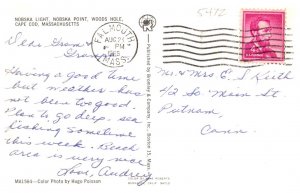 NOBSKA LIGHT, NOBSKA POINT, WOODS HOLE,
CAPE COD, MASSACHUSETTS
5412
FALMOUTH
AUG 21
PM
1965
MASS.
Dear Gram &
Gramp,
Having a good time
but weather has
not been too good.
Plan to go deep sea
fishing sometime
this week. Beach
area is very nice
Love, Audrey
Mr. & Mrs. E. S. Keith
42 So. Main St.
Putnam,
Conn.
MA1563—Color Photo by Hugo Poisson